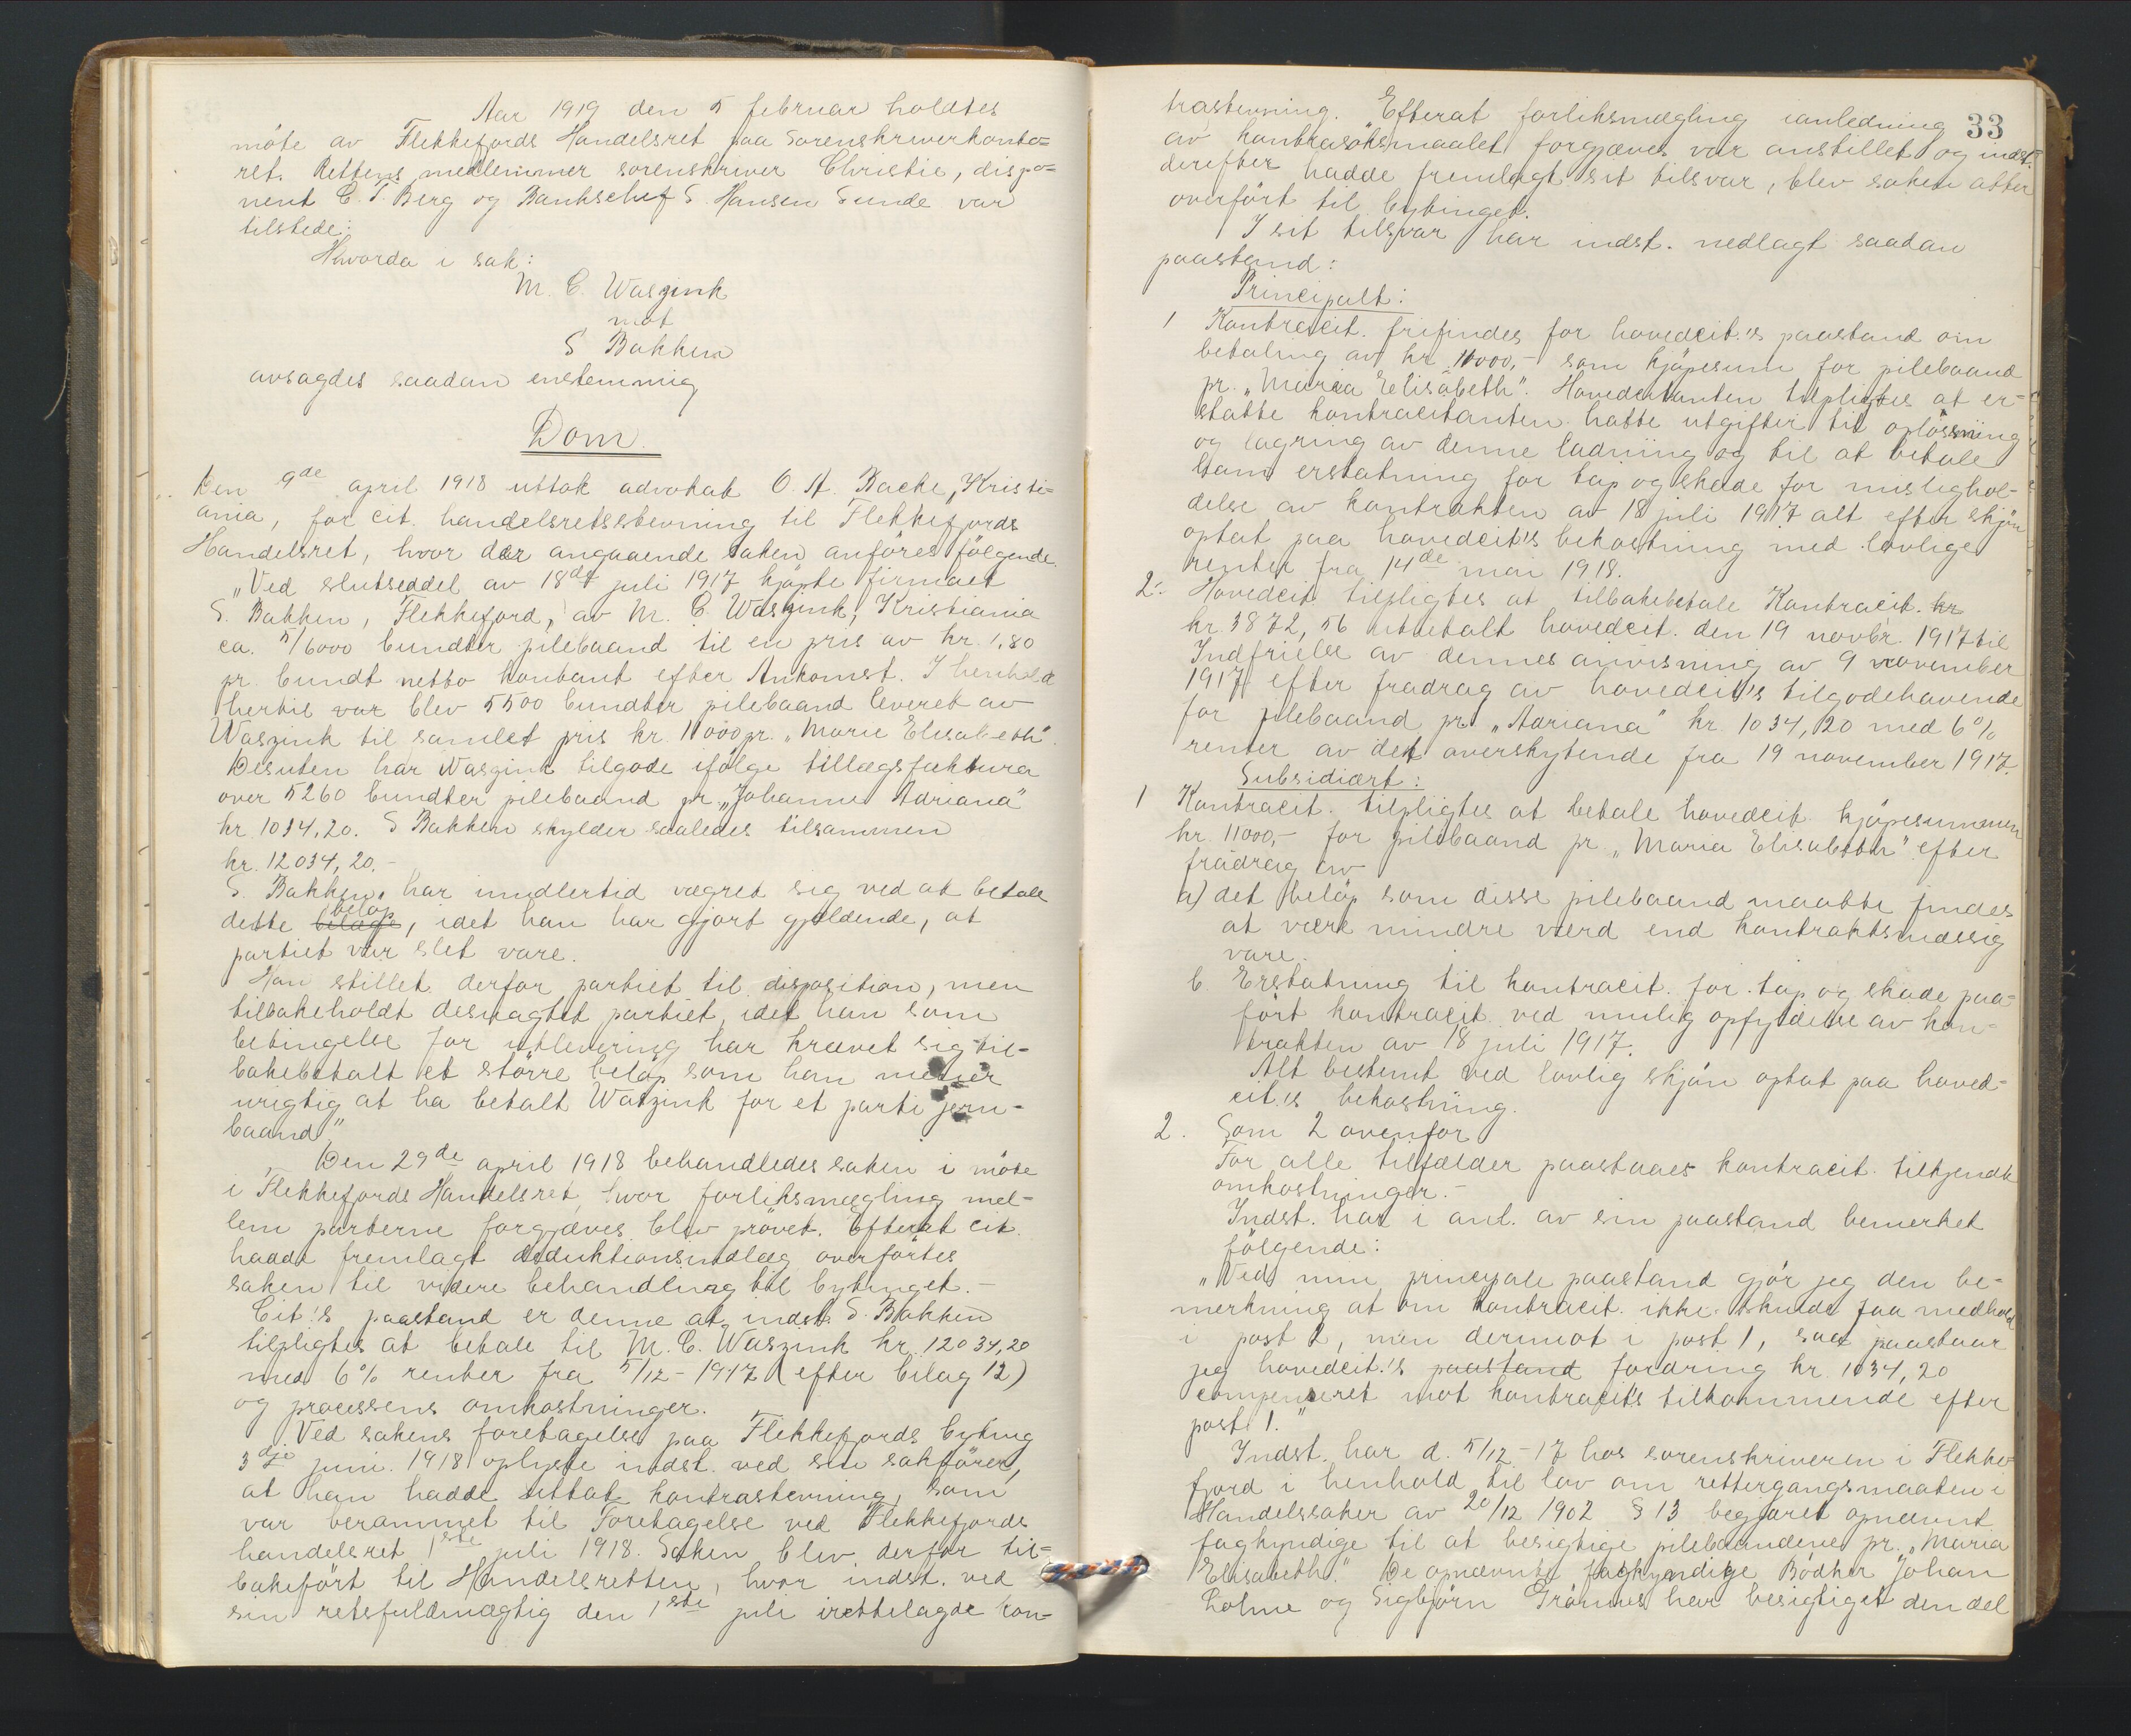 Aar 1919 den 5 februar holdtes
möte av Flekkefjords Handelsret paa Sorenskriverkonto-
ret. Rettens medlemmer sorenskriver Christie, dispo-
nent C. T. Berg og Bankschef S. Hansen Sunde var
tilstede:
Hvorda i sak:
M. C. Waszink
mot
S Bakken
avsagdes saadan enstemmig
Dom.
Den 9de april 1918 uttok advokat O. A. Bache, Kristi-
ania, for cit. handelsretsstevning til Flekkefjords
Handelsret, hvor der angaaende saken anföres fölgende.
"Ved slutseddel av 18de juli 1917 kjöpte firmaet
S. Bakken, Flekkefjord, av M. C. Waszink, Kristiania
ca. 5/6000 bundter pilebaand til en pris av kr. 1,80
pr. bundt netto kontant efter Ankomst. I henhold
hertil var blev 5500 bundter pilebaand leveret av
Waszink til samlet pris kr. 11000 pr. "Marie Elisabeth".
Desuten har Waszink tilgode ifölge tillægsfaktura
over 5260 bundter pilebaand pr "Johanne Adriana"
kr. 1034,20. S Bakken skylder saaledes tilsammen
kr. 12034,20.-
S. Bakken har imidlertid vægret sig ved at betale
dette bilage belöp, idet han har gjort gjeldende, at
partiet var slet vare.
Han stillet derfor partiet til disposition, men
tilbakeholdt desuagtet partiet, idet han som
betingelse for utlevering har krævet sig til-
bakebetalt et större belöp som han mener
urigtig at ha betalt Waszink for et parti jern-
baand"
Den 29de april 1918 behandledes saken i möte
i Flekkefjords Handelsret, hvor forliksmægling mel-
lem parterne forgjæves blev prövet. Efterat cit.
hadde fremlagt deduktionsindlæg overförtes
saken til videre behandling til bytinget.-
Cit.'s paastand er denne at indst. S. Bakken
tilpligtes at betale til M. C. Waszink kr. 12034,20
med 6% renter fra 5/12-1917 (efter bilag 12)
og processens omkostninger.
Ved sakens foretagelse paa Flekkefjords byting
3dje juni 1918 oplyste indst. ved sin sakförer,
at han hadde uttat kontrastevning, som
var berammet til Foretagelse ved Flekkefjords
handelsret 1ste juli 1918. Saken blev derfor til-
bakefört til Handelsretten, hvor indst. ved
sin retsfuldmægtig den 1ste juli irettelagde kon-
33
trastevning. Efterat forliksmægling ianledning
av kontrasöksmaalet forgjæves var anstillet og indst.
derefter hadde fremlagt sit tilsvar, blev saken atter
overfört til bytinget.
I sit tilsvar har indst. nedlagt saadan
paastand:
Principalt:
1 Kontracit. frifindes for hovedcit.'s paastand om
betaling av kr. 11000,- som kjöpesum for pilebaand
pr. "Maria Elisabeth". Hovedcitanten tilpligtes at er-
statte kontracitanten hatte utgifter til oplösning
og lagring av denne ladning og til at betale
ham erstatning for tap og skade for mislighol-
delse av kontrakten av 18 juli 1917 alt efter skjön
optat paa hovedcit's bekostning med lovlige
renter fra 14de mai 1918.
2. Hovedcit. tilpligtes at tilbakebetale Kontracit. kr
kr. 3872,56 utbetalt hovedcit. den 19 novbr. 1917 til
Indfrielse av dennes anvisning av 9 november
1917 efter fradrag av hovedcit's tilgodehavende
for pilebaand pr. "Adriana" kr 1034,20 med 6%
renter av det overskytende fra 19 november 1917.
Subsidiært:
1 Kontracit. tilpligtes at betale hovedcit. kjöpesummen
kr. 11000,- for pilebaand pr. "Maria Elisabeth" efter
fradrag av
a) det belöp som disse pilebaand maatte findes
at være mindre værd end kontraktsmæssig
vare.
b. Erstatning til kontracit. for tap og skade paa-
fört kontracit. ved mulig opfyldelse av kon-
trakten av 18 juli 1917.
Alt bestemt ved lovlig skjön optat paa hoved-
cit.'s bekostning.
2. Som 2 ovenfor
For alle tilfælder paastaaes kontracit. tilkjendt
omkostninger.-
Indst. har i anl. av sin paastand bemerket
fölgende:
"Ved min principale paastand gjör jeg den be-
merkning at om kontracit. ikke skulde faa medhold
i post 2, men derimot i post 1, saa paastaar
jeg hovedcit.'s paastand fordring kr. 1034,20
compenseret mot kontracit's tilkommende efter
post 1."
Indst. har d. 5/12-17 hos sorenskriveren i Flekke-
fjord i henhold til lov om rettergangsmaaten i
Handelssaker av 20/12 1902 § 13 begjæret opnævnt
fagkyndige til at besigtige pilebaandene pr. "Maria
Elisabeth." De opnævnte fagkyndige Bödker Johan
Lohne og Sigbjörn Grönnes har besigtiget den del